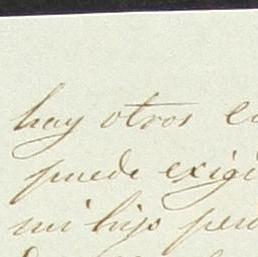 hay otros
puede exigi
mi hijo pero